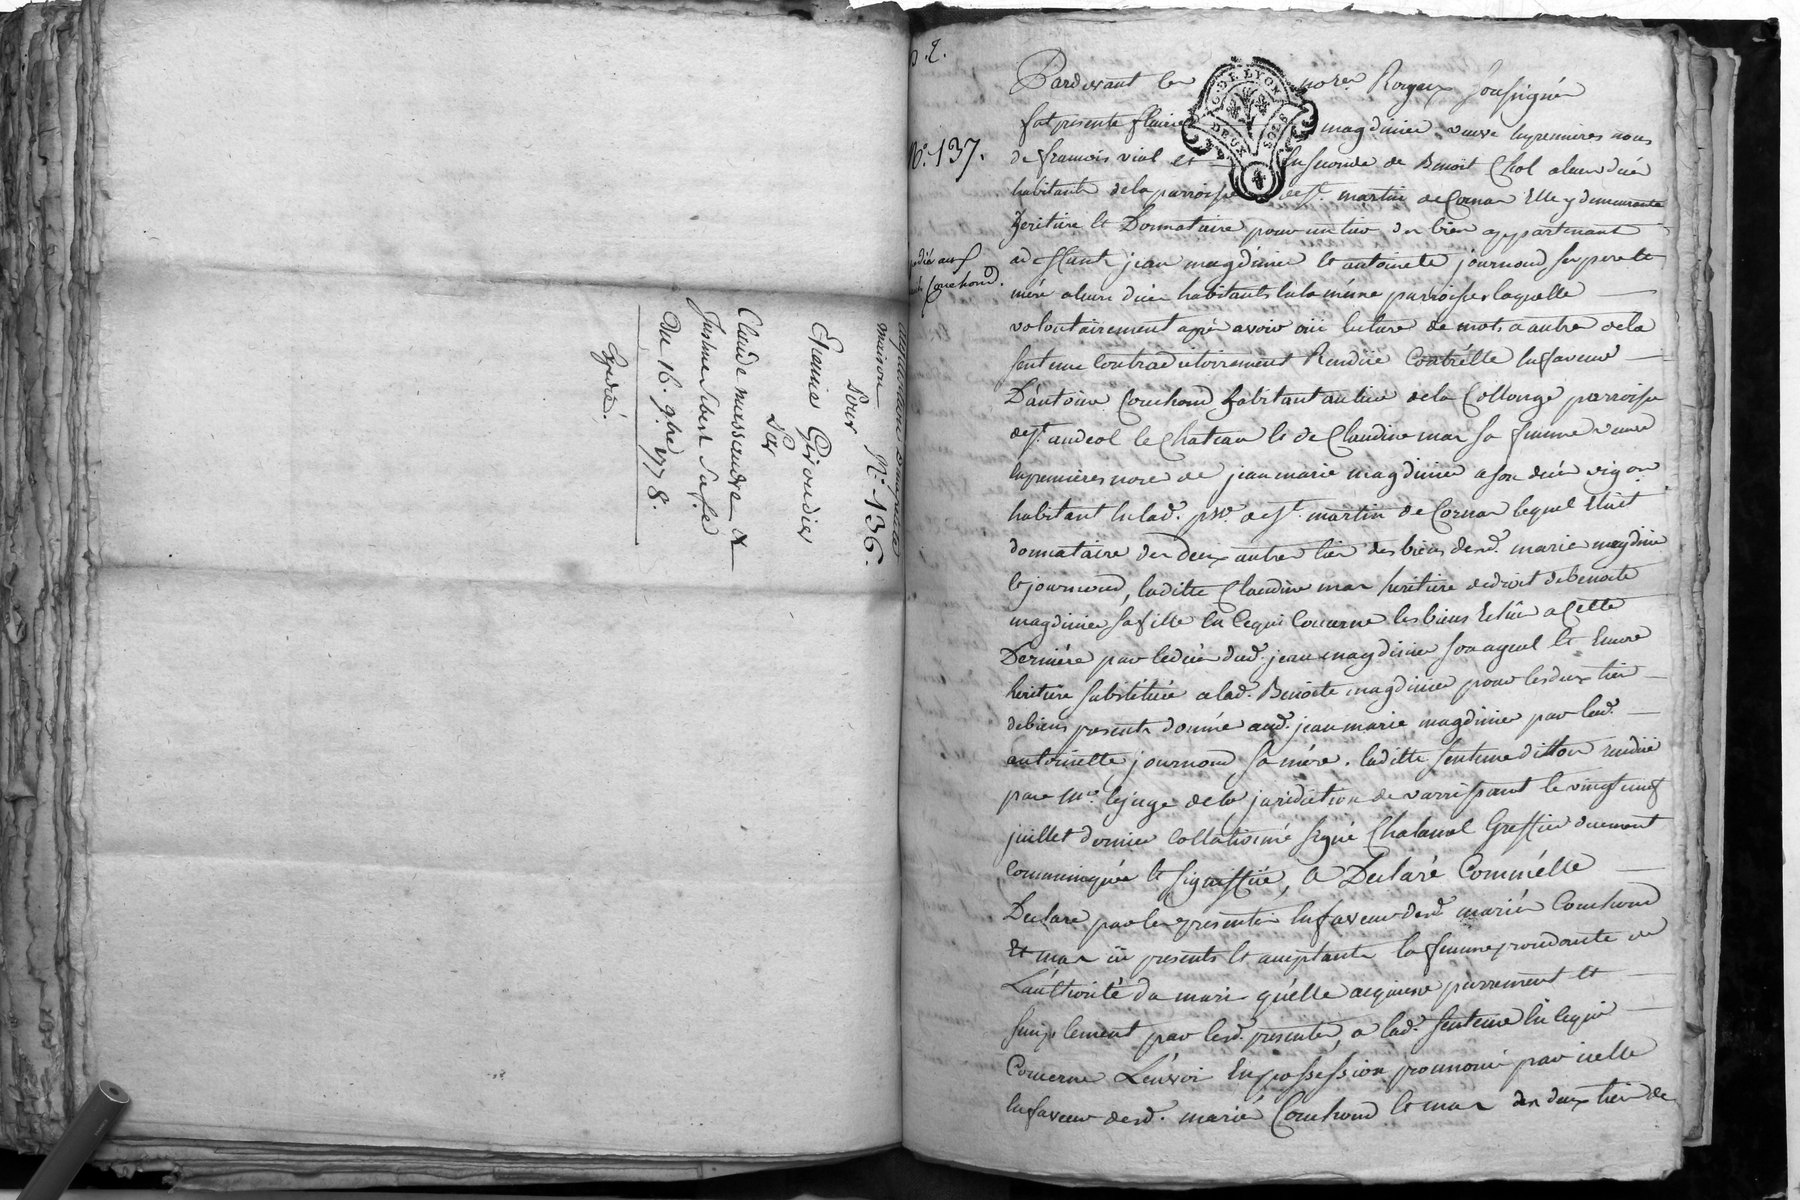 N.° 136.
maison
Pour
Etienne Gioudier
Par
Claude massendre &
Justine Sibert Sa fe
Du 16. 9.bre 1778.
Expedié.
p. 2.
N.° 137.
Couchoud.
G. DE LYON
DEUX SOLS
Pardevant les nores Royaux soussignés
fut présente magdinier veuve En premieres noces
de francois vial et En seconde de Benoit Chol aleur décé
habitante de la parroisse de st. martin de Cornas Elle y demeurante
heritiere Et Donnataire pour un tier des bien appartenant
a deffunts jean magdinier Et antoinete journoud ses pere Et
mere aleurs décés habitants En la même parroisse, laquelle
volontairement après avoir oui lecture de mot a autre de la
sentence Contradictoirement Rendüe Contre Elle En faveur
D'antoine Couchoud habitant au lieu de la Collonge parroisse
de st. andeol le Chateau Et de Claudine mas sa femme veuve
En premieres noce de jean marie magdinier a son décé vig.on
habitant En lad. psse. de st. martin de Cornas lequel Etoit
donnataire des deux autre tier des biens desd. marie magdinier
Et journoud, laditte Claudine mas heritiere de droit de benoite
magdinier sa fille En ce qui Concerne les biens Echû a Cette
Derniére par le décé dud. jean magdinier son ayeul Et Encore
heritiere substituée a lad. Benoite magdinier pour les deux tier
de biens presents donné aud. jean marie magdinier par lad.
antoinette journoud sa mére. laditte sentence ditton rendüe
par mr. le juge de la juridiction de varrissant le vingt neuf
juillet dernier collationné signé Chalamel Greffier duement
communiquée Et signiffiée, a Declaré Comme Elle
Declare par les presentes En faveur desd. mariés Couchoud
Et mas ici presents Et acceptants la femme procedante de
L'authorité du mari qu'elle acquiesce purrement Et
simplement par lesd. presentes, a lad. sentence En ce qui
Concerne L'envoi En possession prononcé par icelle
En faveur desd. mariés Couchoud Et mas des deux tier de